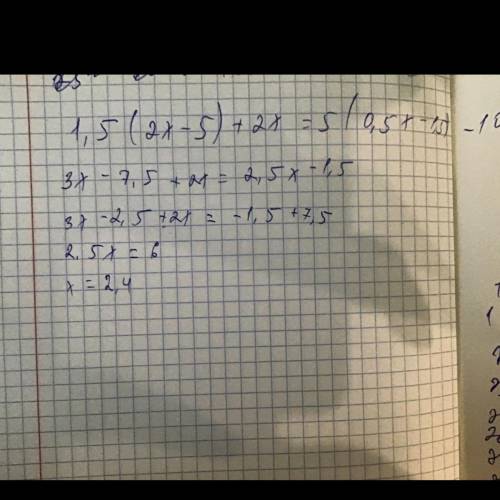 1,5 (2x - 5) + 2x = 5 (0,5x - 1,5) - 1
3x - 7,5 + 2x = 2,5x - 1,5
3x - 2,5 + 2x = -1,5 + 7,5
2,5x = 6
x = 2,4